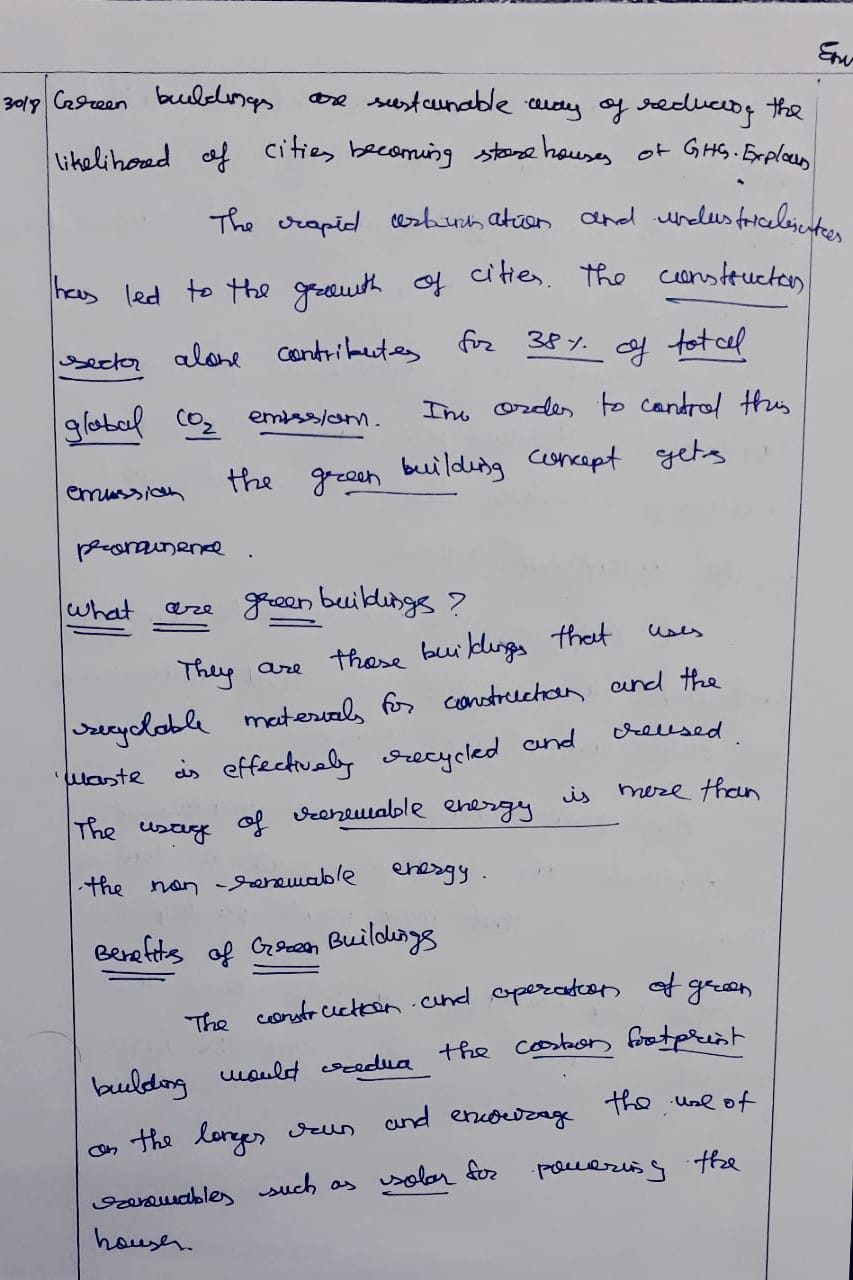 Env
30/8 Green buildings are sustainable way of reducing the
likelihood of cities becoming store houses of GHG. Explain
The rapid urbanisation and industrialisation
has led to the growth of cities. The construction
sector alone contributes for 38% of total
global CO2 emission. In order to control this
emission the green building concept gets
prominence.
What are green buildings?
They are those buildings that uses
recyclable materials for construction and the
waste is effectively recycled and reused.
The usage of renewable energy is more than
the non-renewable energy.
Benefits of Green Buildings
The construction and operation of green
building would reduce the carbon footprint
on the longer run and encourage the use of
renewables such as solar for powering the
houses.